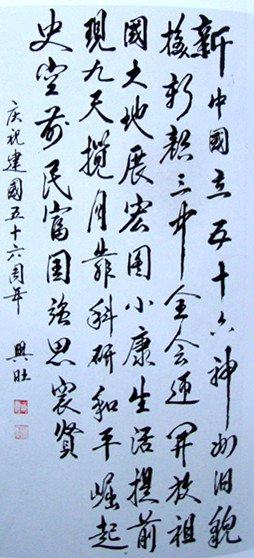 新中國立五十六神州旧貌
换新颜三中全会迎開放祖
國土地展宏图小康生活提前
現九天攬月靠科研和平崛起
史空前民富国强思贤
庆祝建國五十六周年
興旺